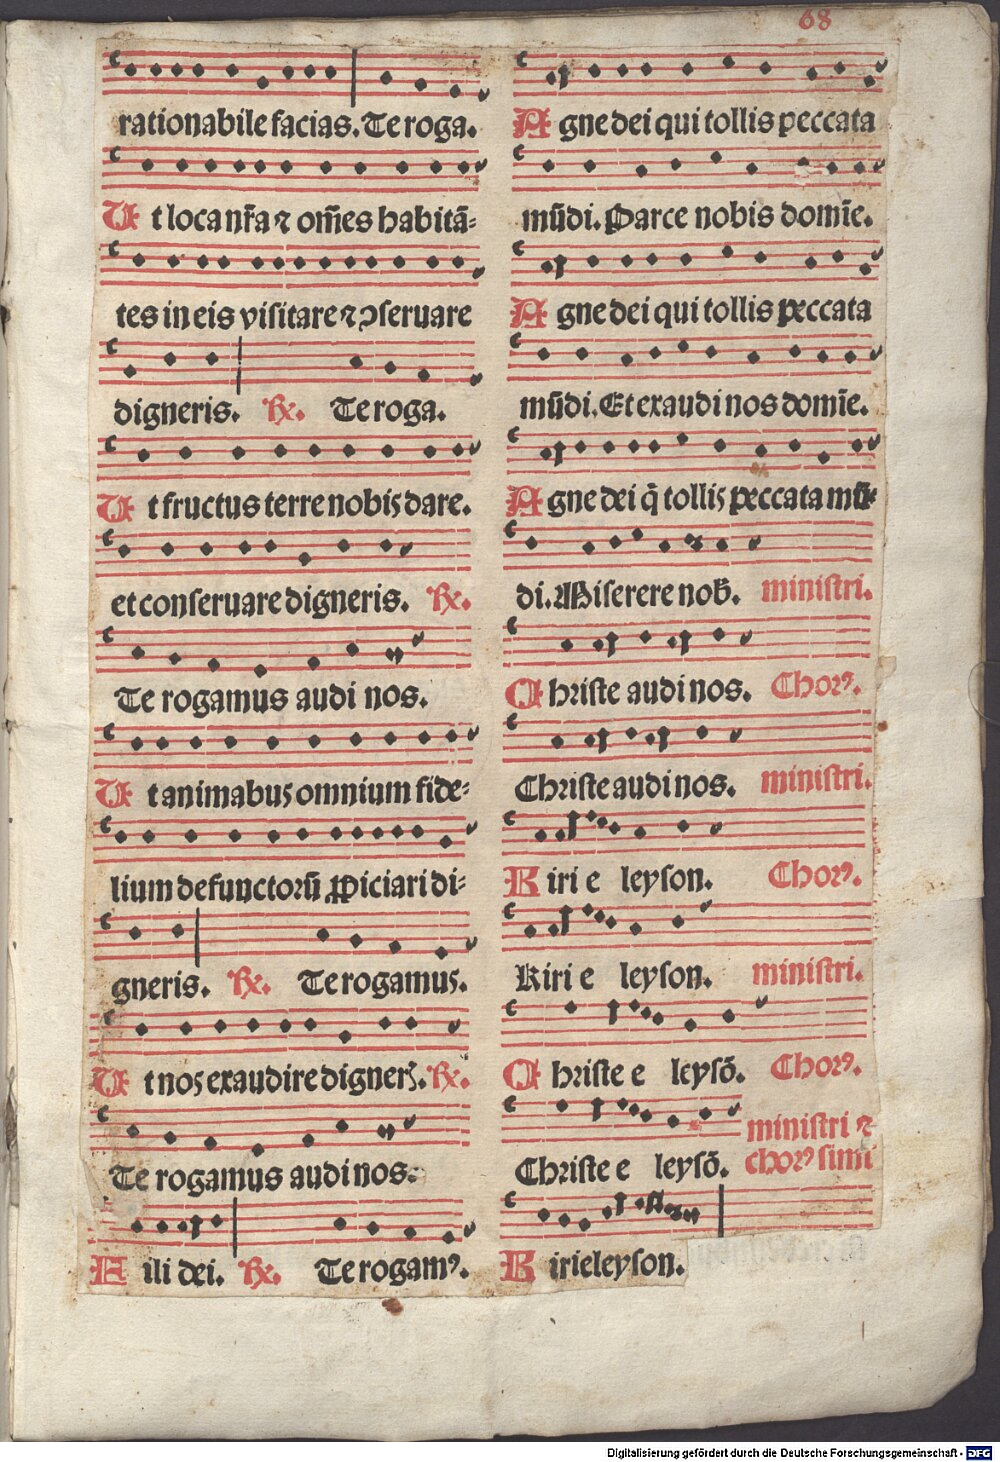 68
rationabile facias. Te roga.
Ut loca nr̄a ⁊ om̄es habitā-
tes in eis visitare ⁊ ꝯseruare
digneris. ℞. Te roga.
Ut fructus terre nobis dare.
et conseruare digneris. ℞.
Te rogamus audi nos.
Ut animabus omnium fide-
lium defunctorū ꝓpiciari di-
gneris. ℞. Te rogamus.
Ut nos exaudire digner̄. ℞.
Te rogamus audi nos.
Fili dei. ℞. Te rogamꝰ.
Agne dei qui tollis peccata
mūdi. Parce nobis domīe.
Agne dei qui tollis peccata
mūdi. Et exaudi nos domīe.
Agne dei q̄ tollis peccata mū-
di. Miserere nob̄. ministri.
Christe audi nos. Chorꝰ.
Christe audi nos. ministri.
Kiri e leyson. Chorꝰ.
Kiri e leyson. ministri.
Christe e leysō. Chorꝰ.
Christe e leysō. ministri ⁊
chorꝰ simĺ
Kirieleyson.
Digitalisierung gefördert durch die Deutsche Forschungsgemeinschaft - DFG